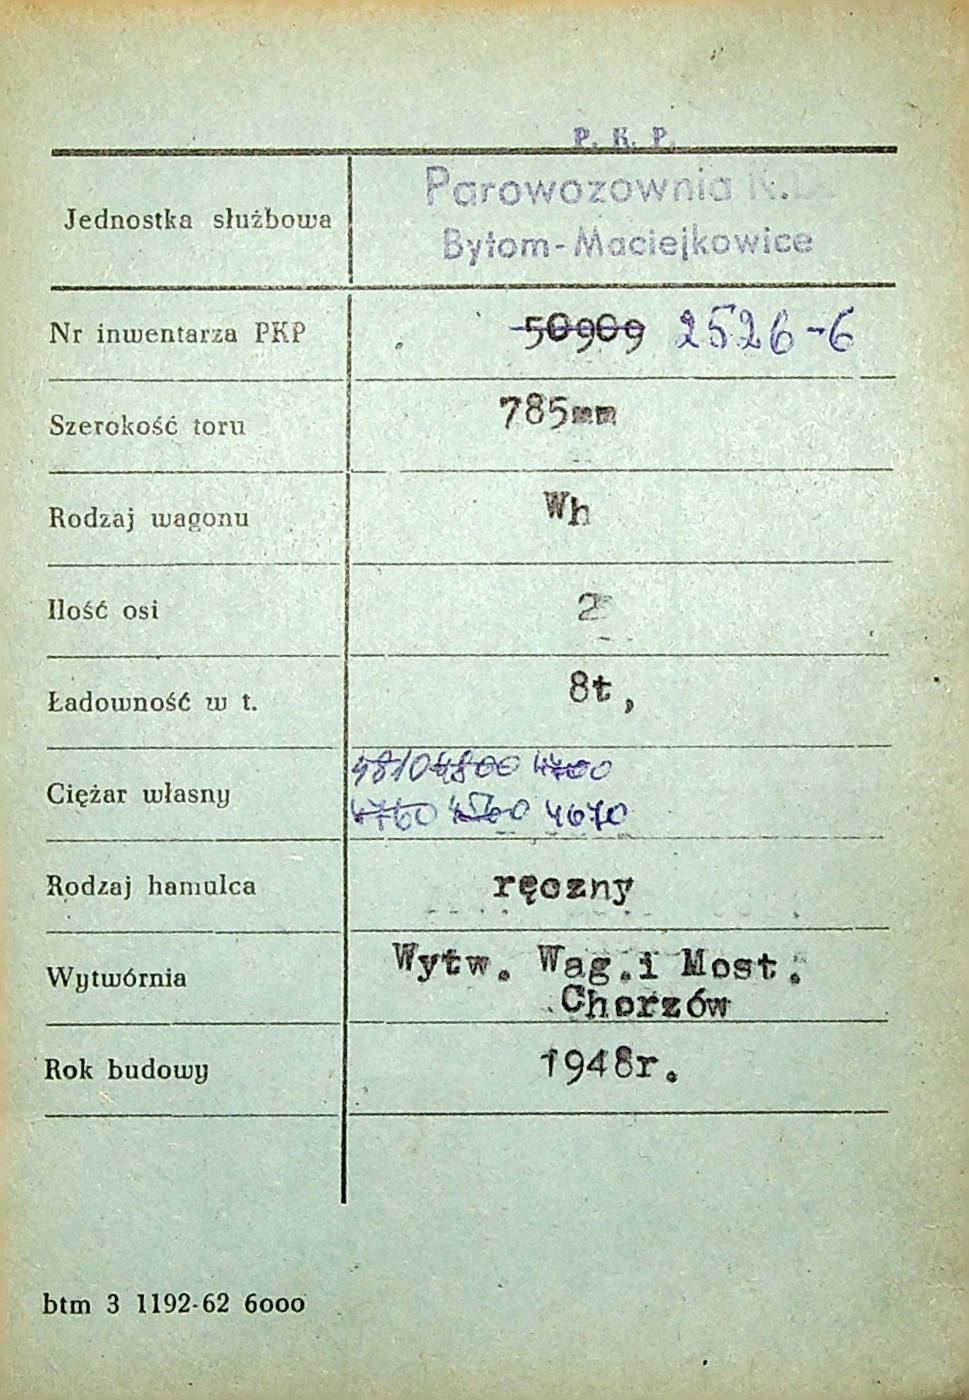 P. K. P.
Jednostka służbowa Parowozownia
Bytom-Maciejkowice
Nr inwentarza PKP 50909 2526-6
Szerokość toru 785mm
Rodzaj wagonu Wh
Ilość osi 2
Ładowność w t. 8t,
Ciężar własny 4810 4800 4700
4760 4560 4670
Rodzaj hamulca ręczny
Wytwórnia Wytw. Wag.i Most.
Chorzów
Rok budowy 1948r.
btm 3 1192-62 6000